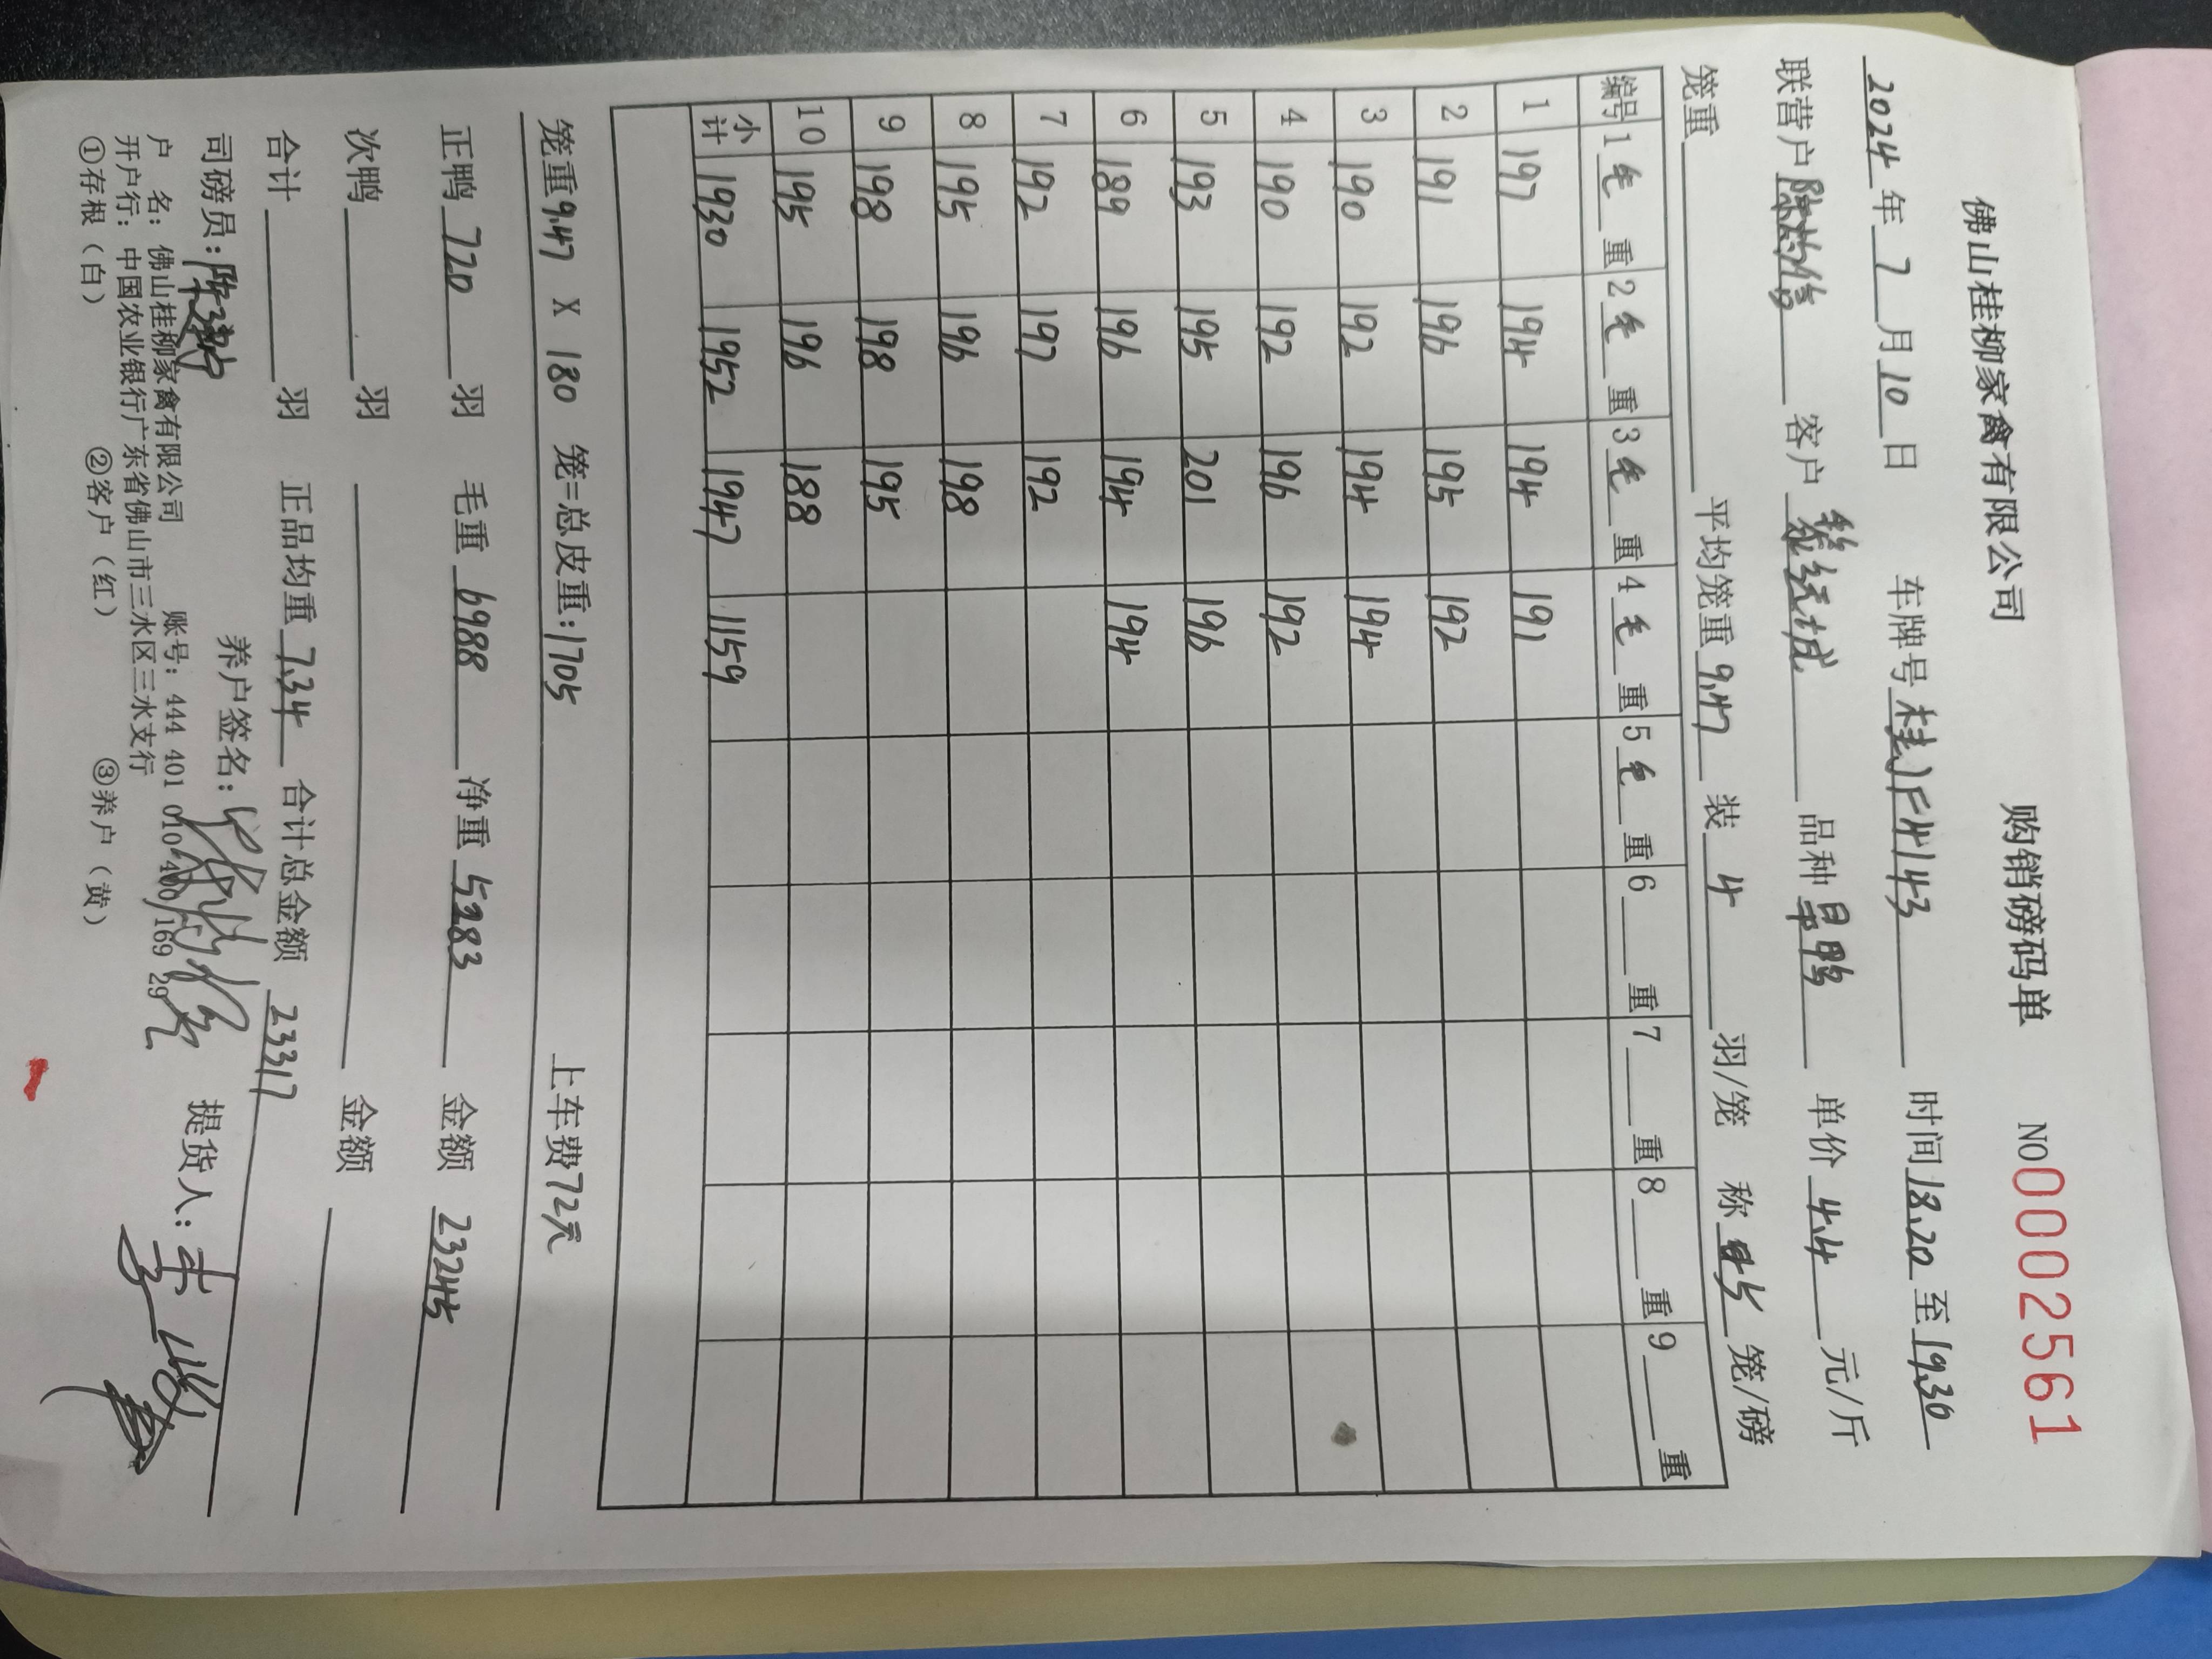 佛山桂柳家禽有限公司 购销磅码单 NO 0002561
2024年7月10日 车牌号桂J F4143 时间18.20至19.30
联营户 客户 品种旱鸭 单价4.4元/斤
笼重 平均笼重9.47 装4羽/笼 称5笼/磅
编号 1毛重 2毛重 3毛重 4毛重 5毛重 6重 7重 8重 9重
1 197 194 194 191
2 191 196 195 192
3 190 192 194 194
4 190 192 196 192
5 193 195 201 196
6 189 196 194 194
7 192 197 192
8 195 196 198
9 198 198 195
10 195 196 188
小计 1930 1952 1947 1159
笼重9.47 X 180 笼=总皮重:1705 上车费72元
正鸭720羽 毛重6988 净重5283 金额23245
次鸭羽 金额
合计羽 正品均重7.34 合计总金额23317
司磅员: 养户签名: 提货人:
户 名: 佛山桂柳家禽有限公司 账号: 444 401 010 400 169 29
开户行: 中国农业银行广东省佛山市三水区三水支行
①存根(白) ②客户(红) ③养户(黄)